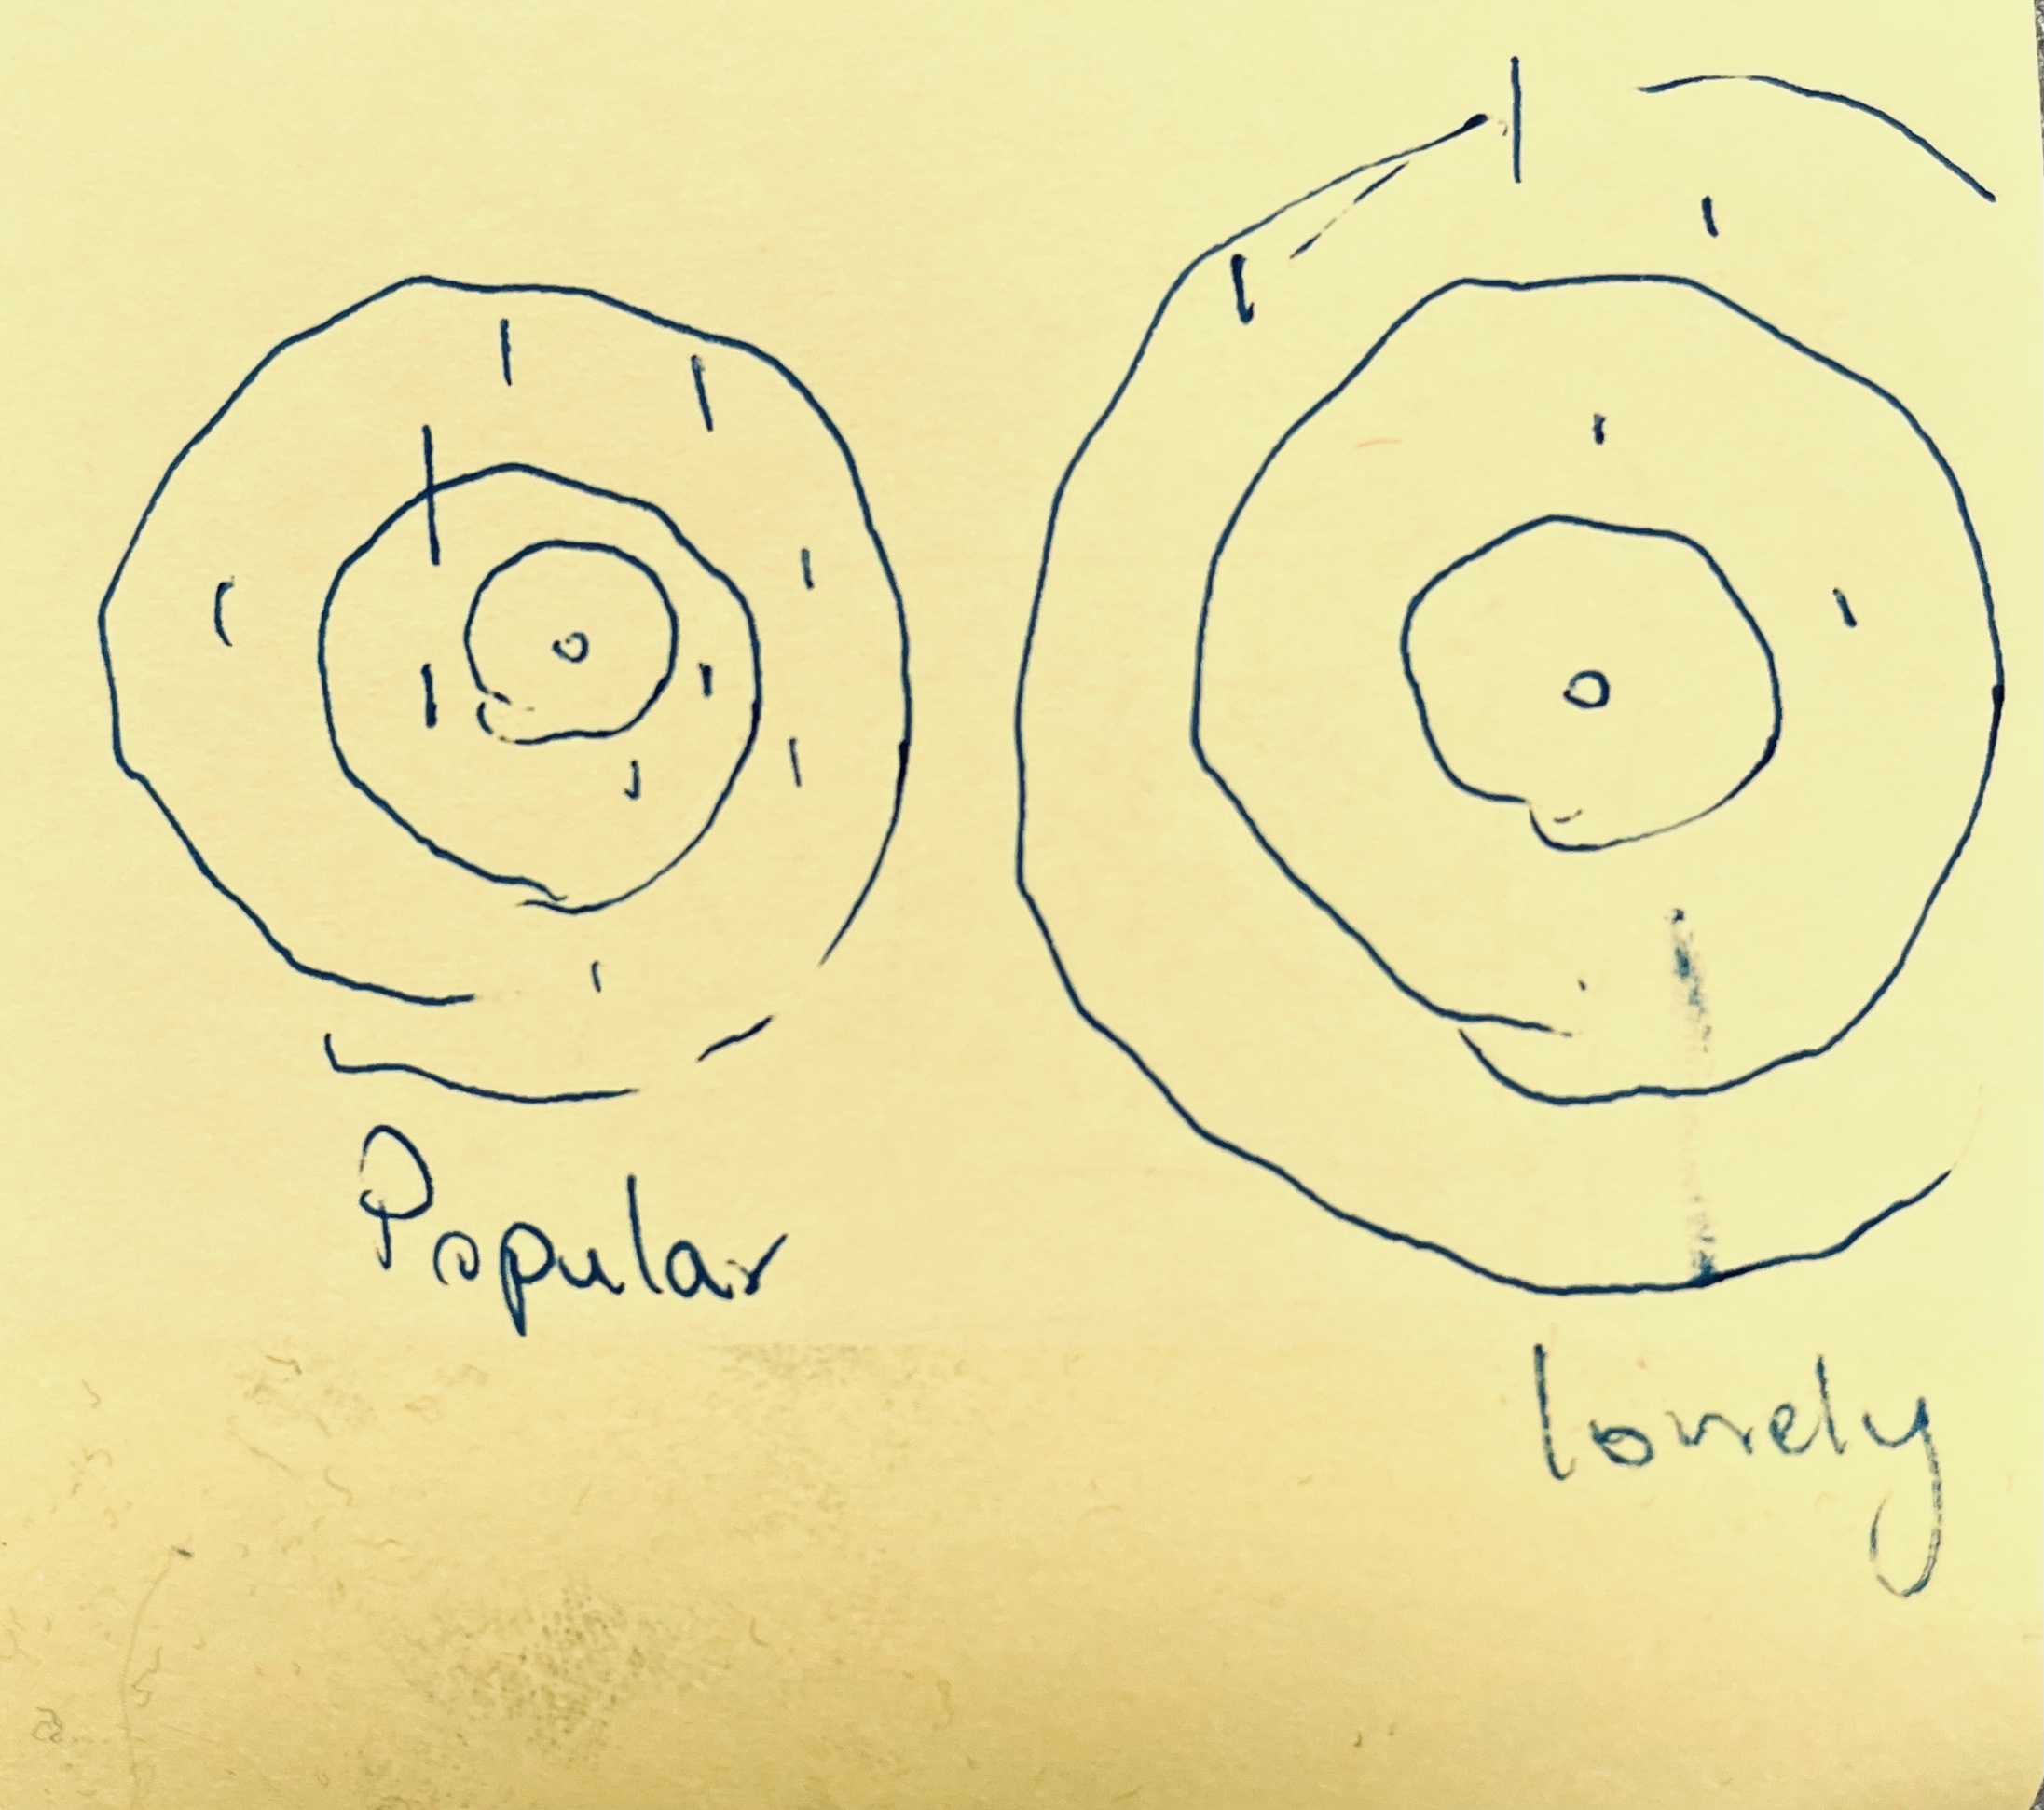 Popular
lonely